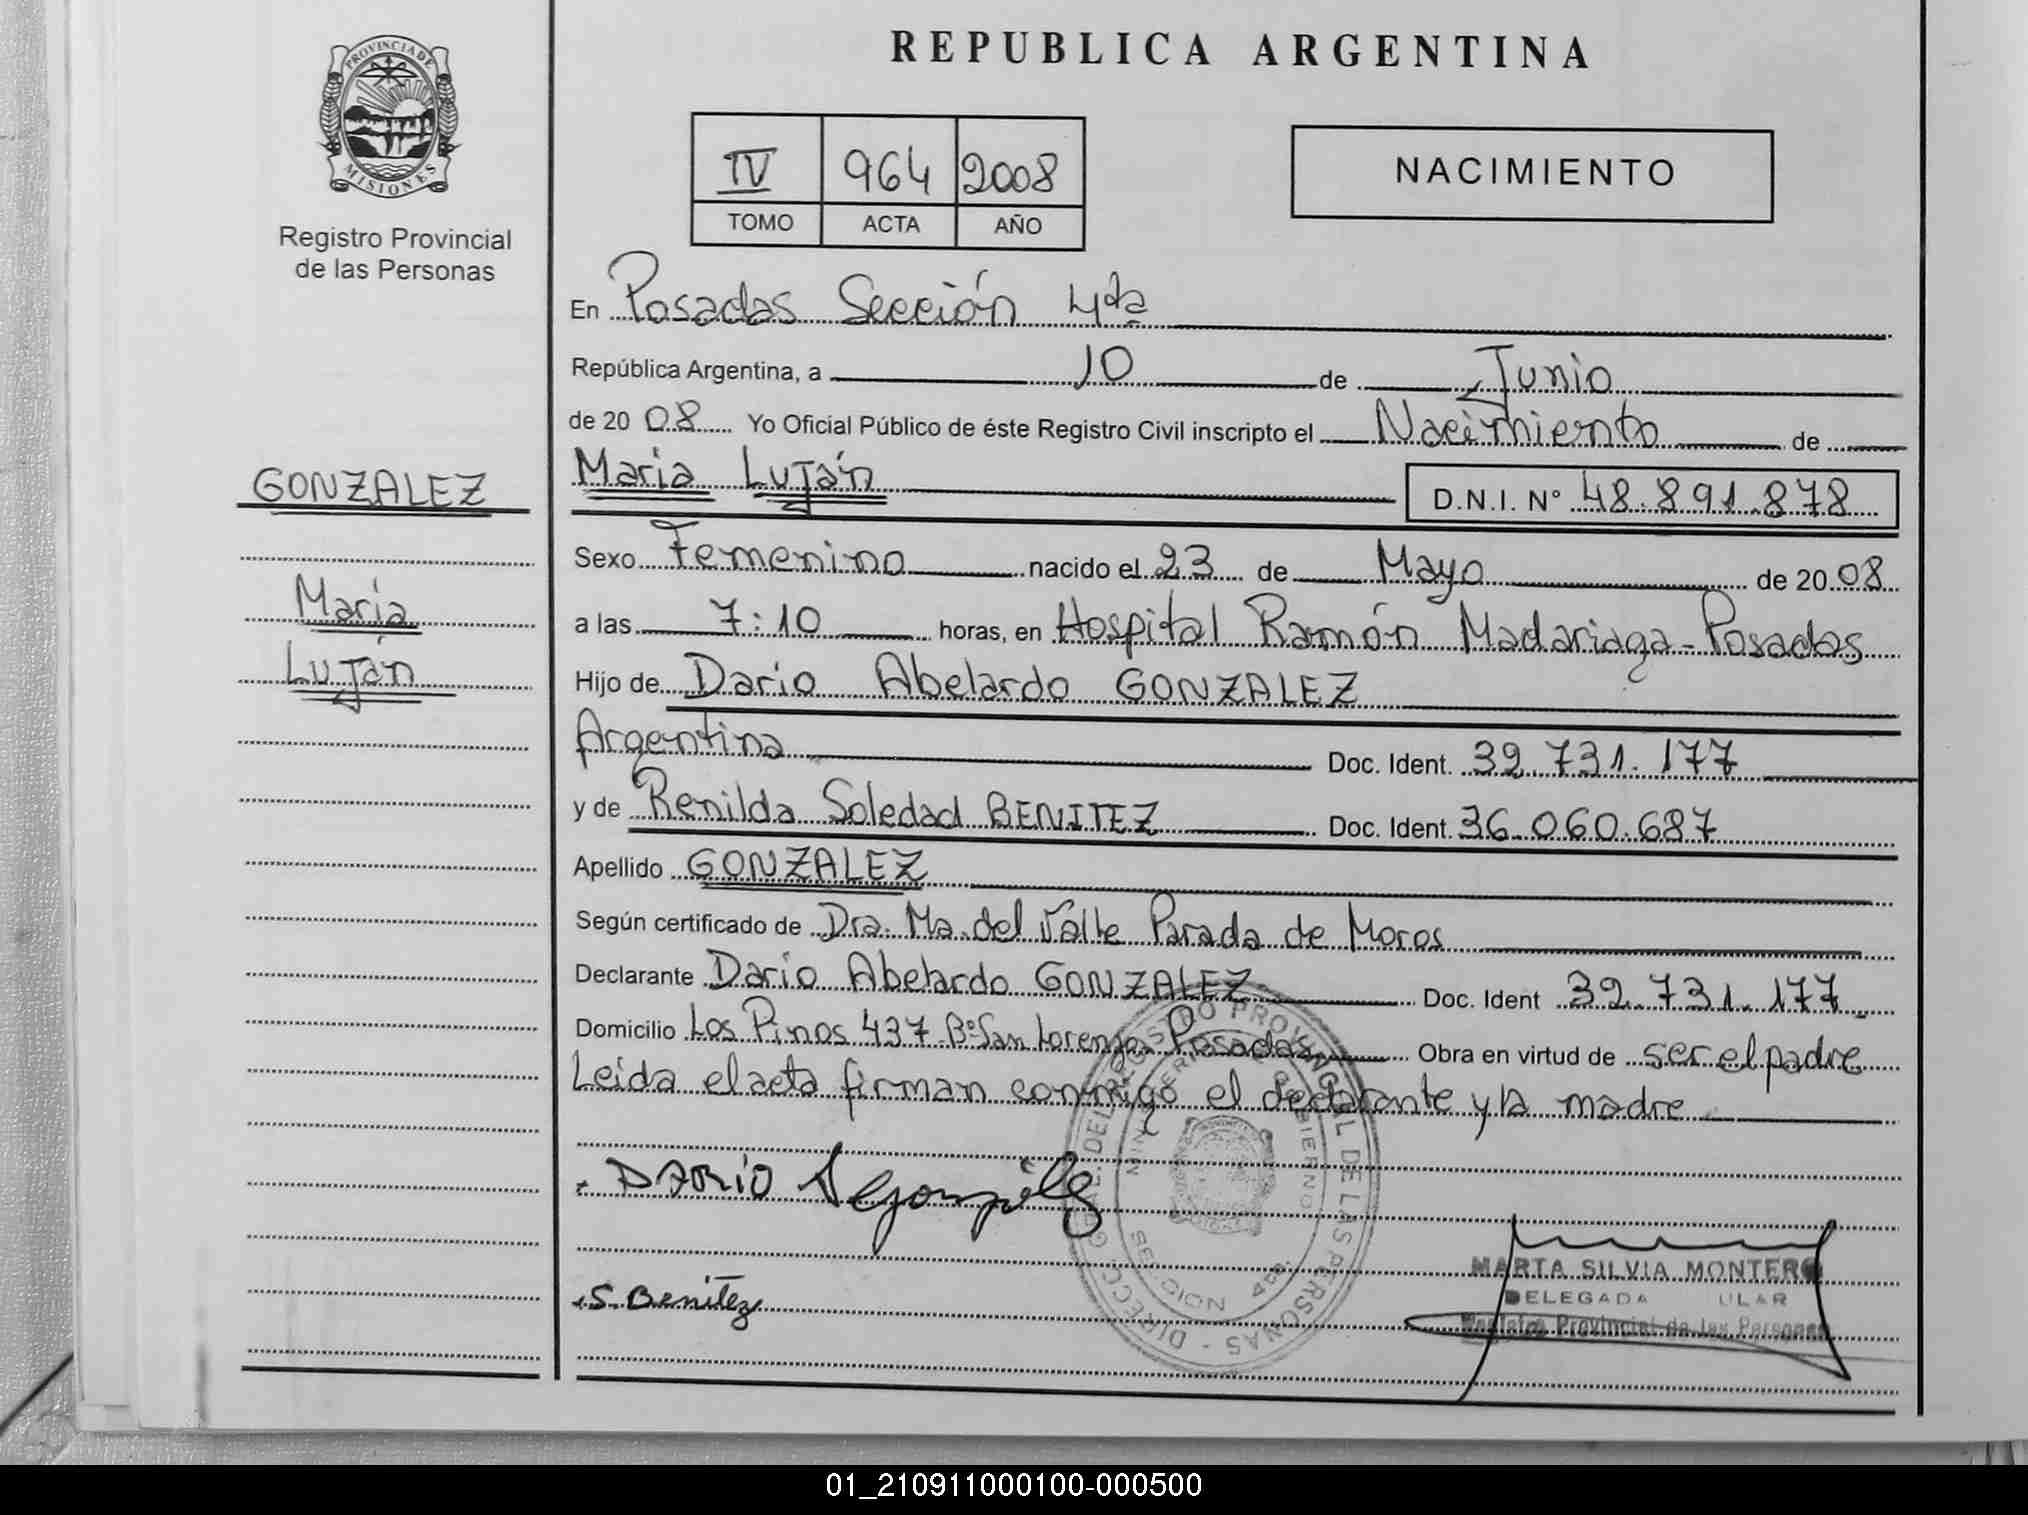 REPUBLICA ARGENTINA
PROVINCIA DE
MISIONES
Registro Provincial
de las Personas
IV 964 2008
TOMO ACTA AÑO
NACIMIENTO
En Posadas Sección 4da
República Argentina, a 10 de Junio
de 20 08 Yo Oficial Público de éste Registro Civil inscripto el Nacimiento de
GONZALEZ
Maria
Luján
Maria Luján D.N.I. N° 48.891.878
Sexo Femenino nacido el 23 de Mayo de 20 08
a las 7:10 horas, en Hospital Ramón Madariaga - Posadas
Hijo de Dario Abelardo GONZALEZ
Argentina Doc. Ident. 32.731.177
y de Renilda Soledad BENITEZ Doc. Ident. 36.060.687
Apellido GONZALEZ
Según certificado de Dra. Ma. del Valle Parada de Moros
Declarante Dario Abelardo GONZALEZ Doc. Ident 32.731.177
Domicilio Los Pinos 437-B° San Lorenzo, Posadas Obra en virtud de ser el padre
Leida el acta firman conmigo el declarante y la madre
DARIO A Gonzalez
S. Benitez
MARTA SILVIA MONTERO
DELEGADA
Registro Provincial de las Personas
DIRECC. GRAL. DEL REGISTRO PROVINCIAL DE LAS PERSONAS
01_210911000100-000500